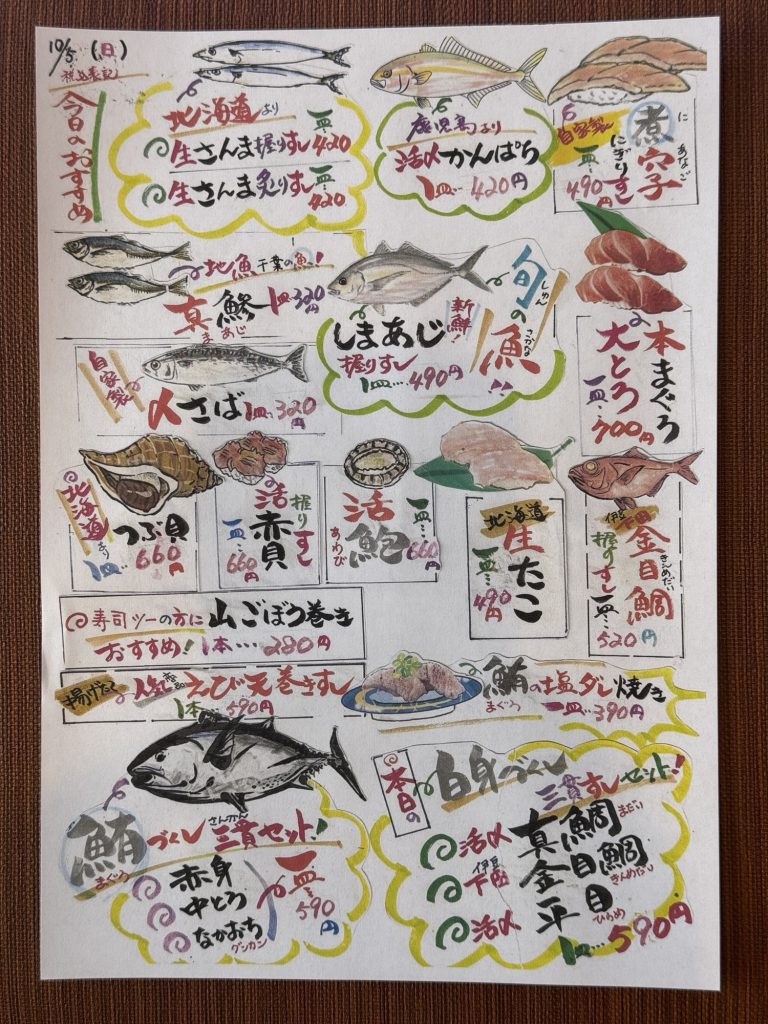 10/5 (日)
税込表記
今日のおすすめ
北海道より
生さんま握りすし 一皿…420
生さんま炙りすし 一皿…420
鹿児島より
活〆かんぱち
1皿…420円
自家製
煮穴子
に あなご
にぎりすし
一皿…490円
地魚 千葉の魚!
真鯵 1皿320円
まあじ
旬の魚!!
しゅん さかな
新鮮!
しまあじ
握りすし
1皿…490円
本まぐろ
大とろ
一皿…700円
自家製
〆さば 1皿…320円
北海道より
つぶ貝
1皿…660円
活赤貝
握りすし
一皿…660円
活鮑
あわび
一皿…660円
北海道
生たこ
一皿…490円
伊豆下田
金目鯛
きんめだい
握りすし
一皿…520円
寿司ツーの方に 山ごぼう巻き
おすすめ! 1本…280円
揚げたて 人気 えび天巻きすし
1本…590円
鮪の塩ダレ焼き
まぐろ 一皿…390円
鮪づくし三貫セット!
まぐろ さんかん
赤身
中とろ
なかおち
グンカン
一皿…590円
本日の
白身づくし
三貫すしセット!
活〆 真鯛 まだい
伊豆下田 金目鯛 きんめだい
活〆 平目 ひらめ
1皿…590円